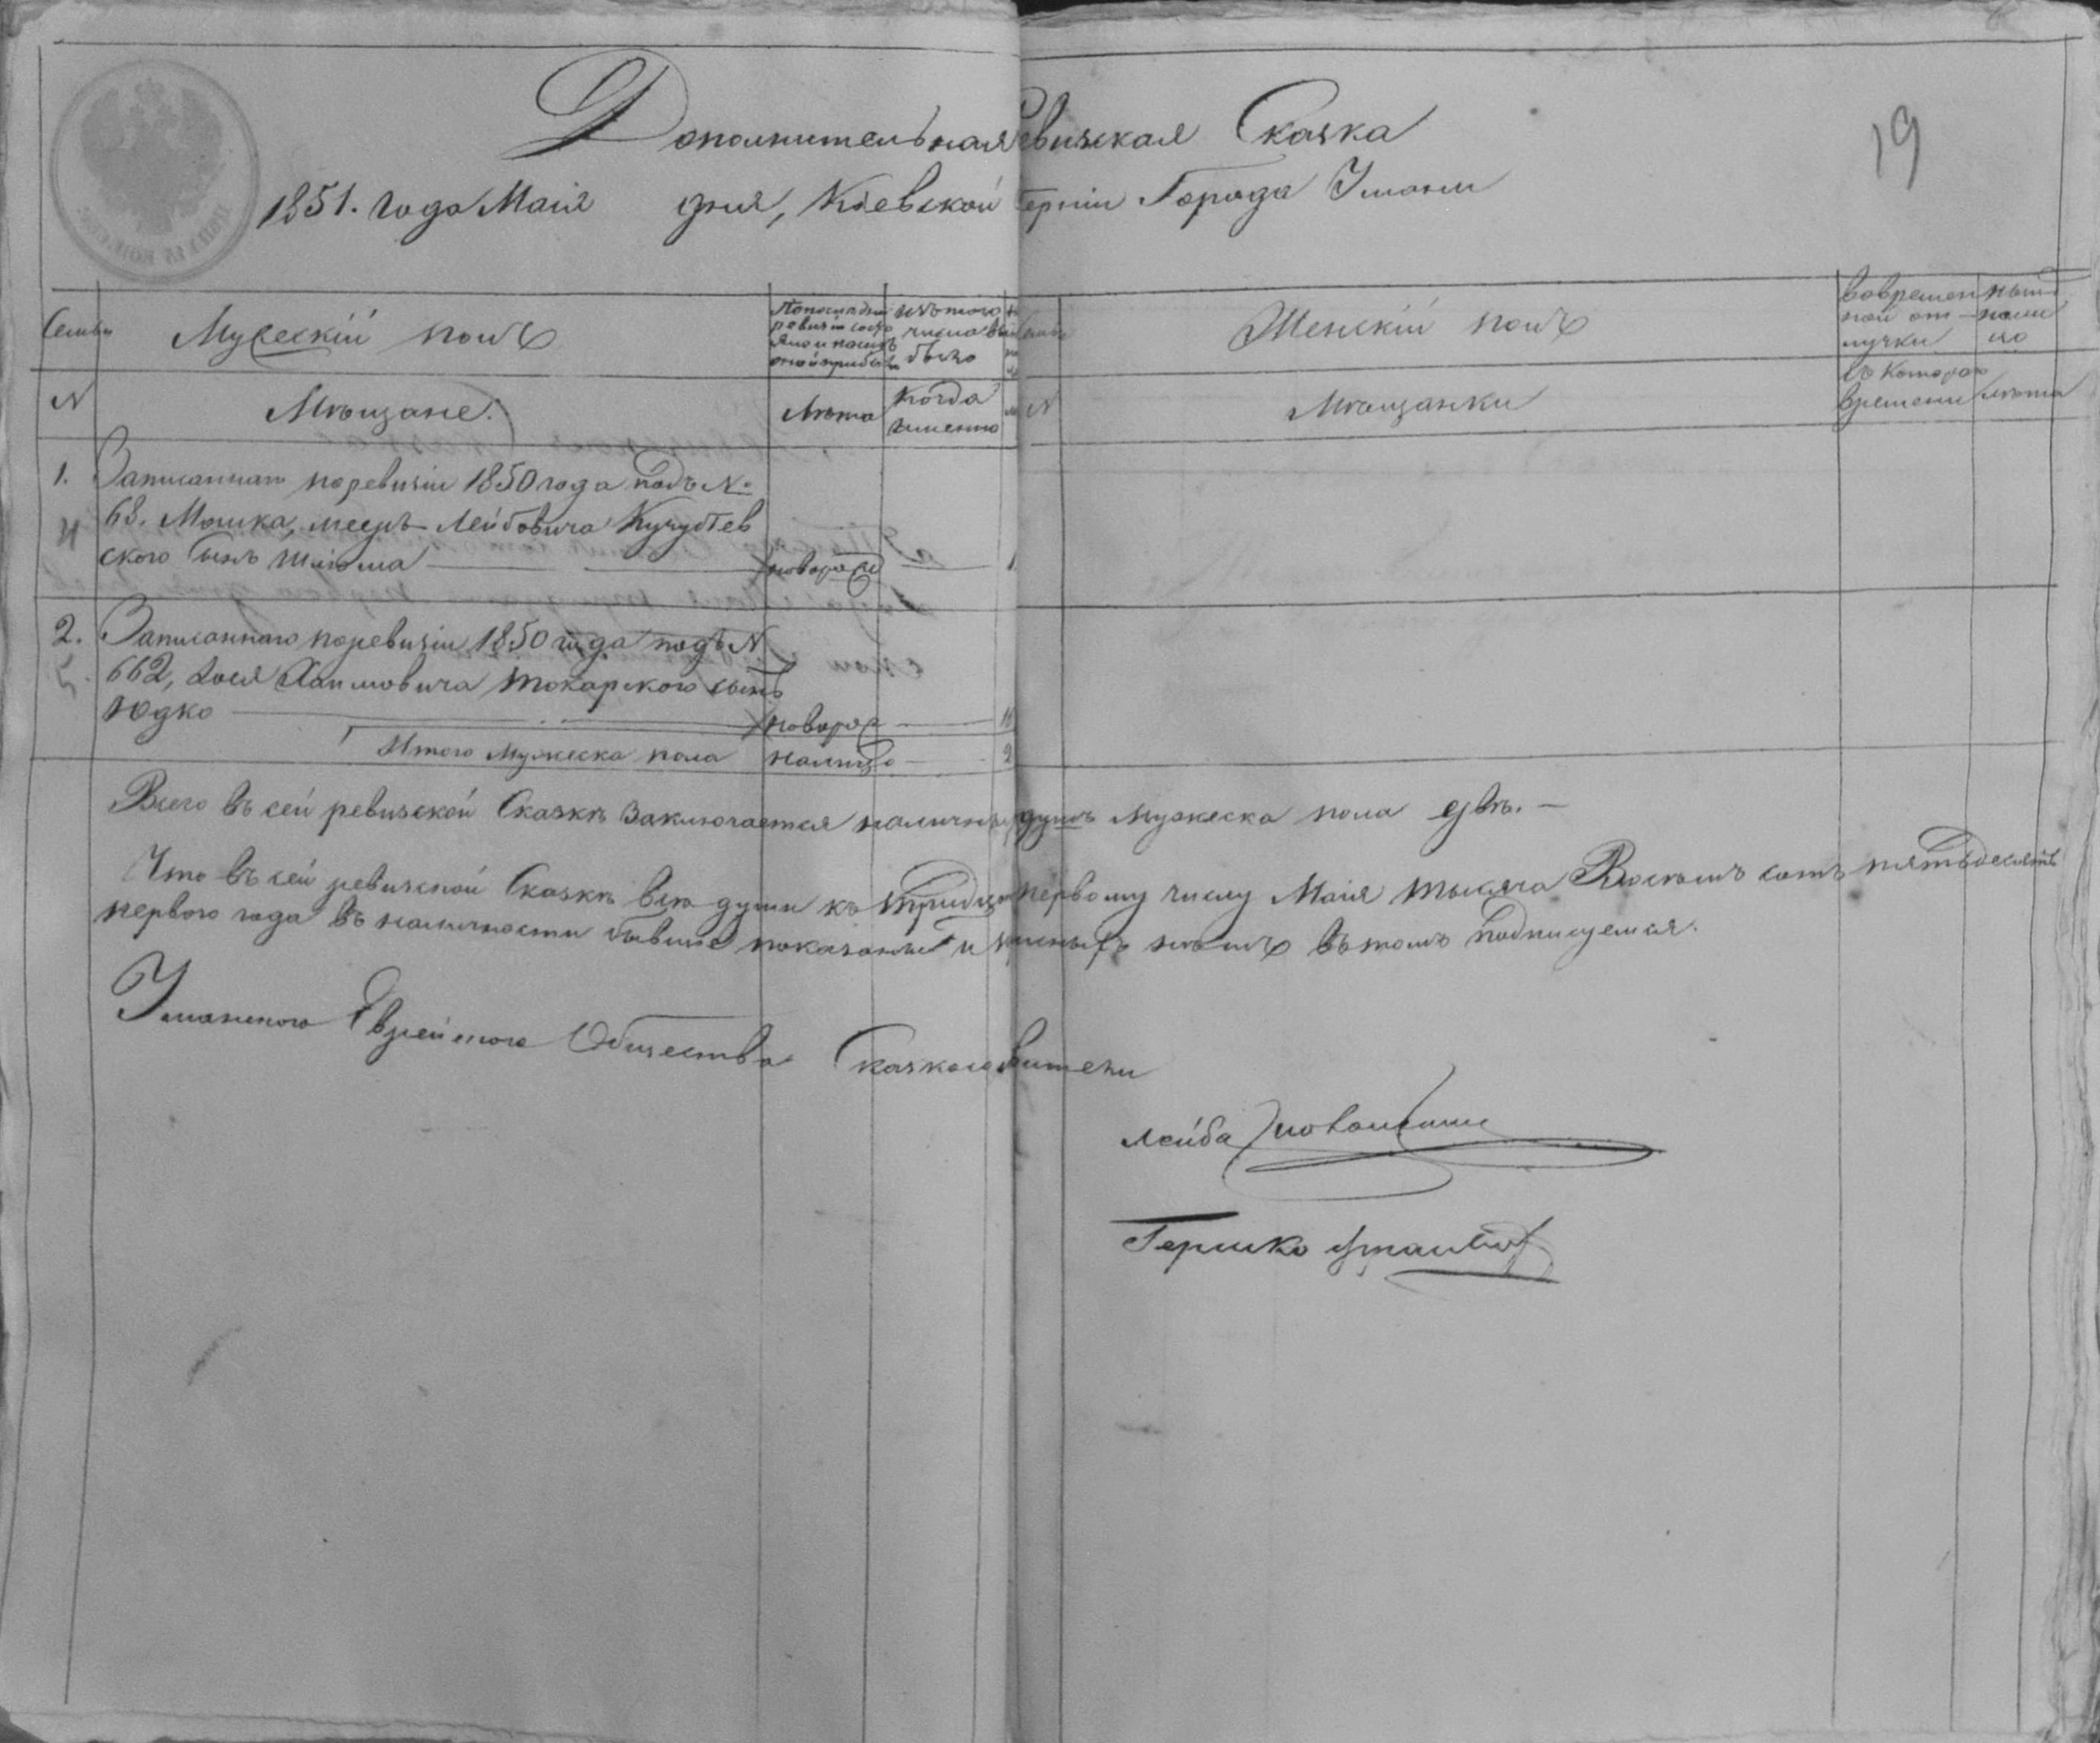 19
Дополнительная Ревизская Сказка
1851. года Маія дня, Кіевской Губерніи Города Умани
Семьи
Мужескій полъ
По последней ревизіи состояло и после оной прибыло
изъ того числа выбыло
Женскій полъ
Во временной отлучки
ныне на лицо
N
Мѣщане.
Лѣта
когда именно
N
Мѣщанки
съ которого времени
лѣта
1. Записанного поревизіи 1850 года подъ №
68. Мошка, мееръ Лейбовича
ского Сынъ Шліома новорож 1.
4
2. Записанного поревизіи 1850 года подъ N
662, Хаимовича Токарского сынъ
Юдко новорож
5.
Итого мужеска пола налицо 2
Всего въ сей ревизской Сказкѣ заключается наличныхъ душъ мужеска пола двѣ. —
Что въ сей ревизской Сказкѣ все души къ тридцать первому числу Маія тысяча Восемь сотъ пятьдесятъ
первого года въ наличности бывшіе показаны и нетъ въ томъ подписуемся.
Уманского Еврейского Общества Сказкосоставители
Лейба
Гершко